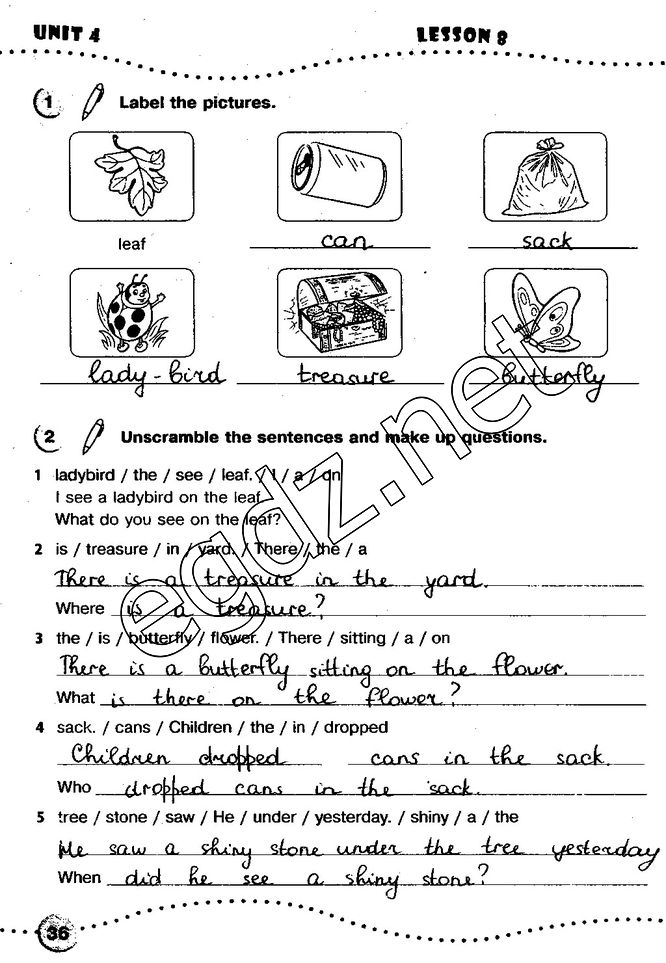 UNIT 4
LESSON 8
1 Label the pictures.
leaf
can
sack
lady-bird
treasure
butterfly
2 Unscramble the sentences and make up questions.
1 ladybird / the / see / leaf. / I / a / on
I see a ladybird on the leaf.
What do you see on the leaf?
2 is / treasure / in / yard. / There / the / a
There is a treasure in the yard.
Where is a treasure?
3 the / is / butterfly / flower. / There / sitting / a / on
There is a butterfly sitting on the flower.
What is there on the flower?
4 sack. / cans / Children / the / in / dropped
Children dropped cans in the sack.
Who dropped cans in the sack.
5 tree / stone / saw / He / under / yesterday. / shiny / a / the
He saw a shiny stone under the tree yesterday
When did he see a shiny stone?
36
egdz.net